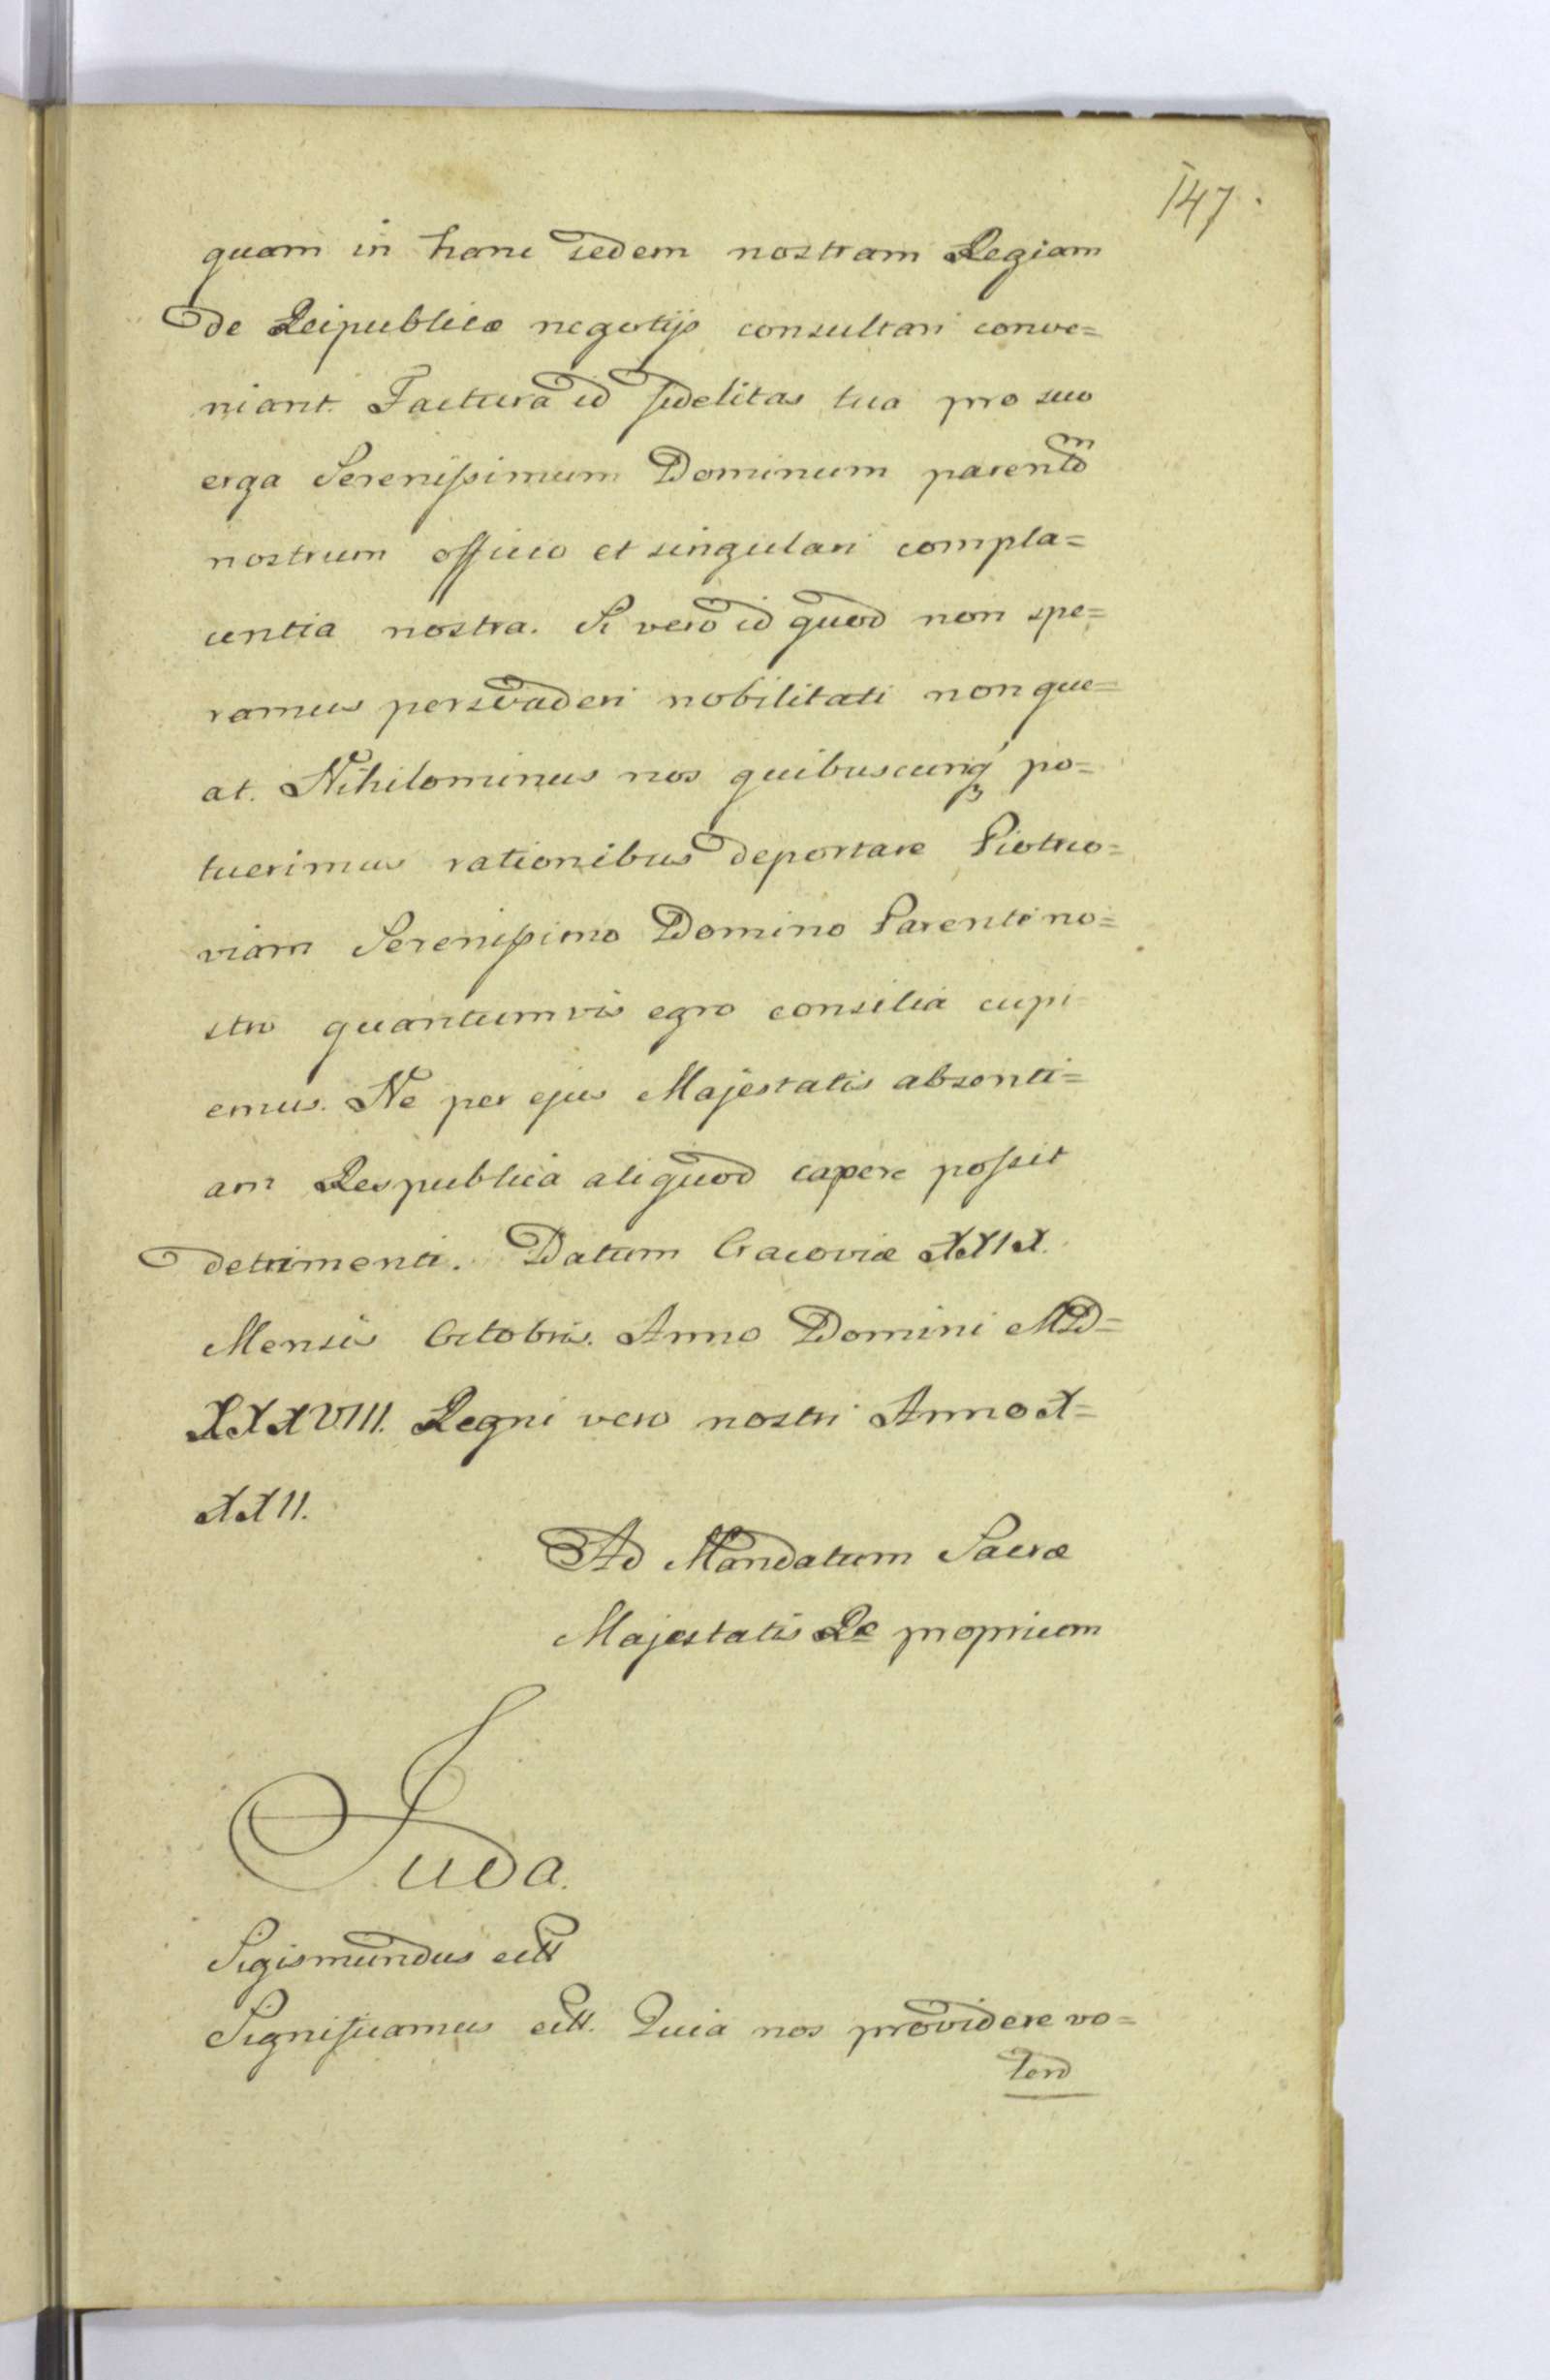 147.
quam in hanc sedem nostram Regiam
de Reipublicæ negotijs consultari conve=
niant. Factura id fidelitas tua pro suo
erga Serenissimum Dominum parentem
nostrum officio et singulari compla=
centia nostra. Si vero id quod non spe=
ramus persvaderi nobilitati non que=
at. Nihilominus nos quibuscunq₃ po=
tuerimus rationibus deportare Piotrco=
viam Serenissimo Domino Parenti no=
stro quantumvis egro consilia cupi
emus. Ne per ejus Majestatis absenti=
am Respublica aliquod capere possit
detrimenti. Datum Cracoviæ XXIX.
Mensis Octobris. Anno Domini MD=
XXXVIII. Regni vero nostri Anno X=
XXII.
Ad Mandatum Sacræ
Majestatis Re proprium
Juda.
Sigismundus ectt
Significamus ectt. Quia nos providere vo=